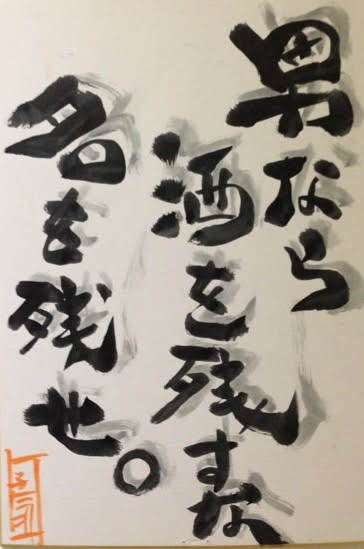 男なら
酒を残すな
名を残せ。